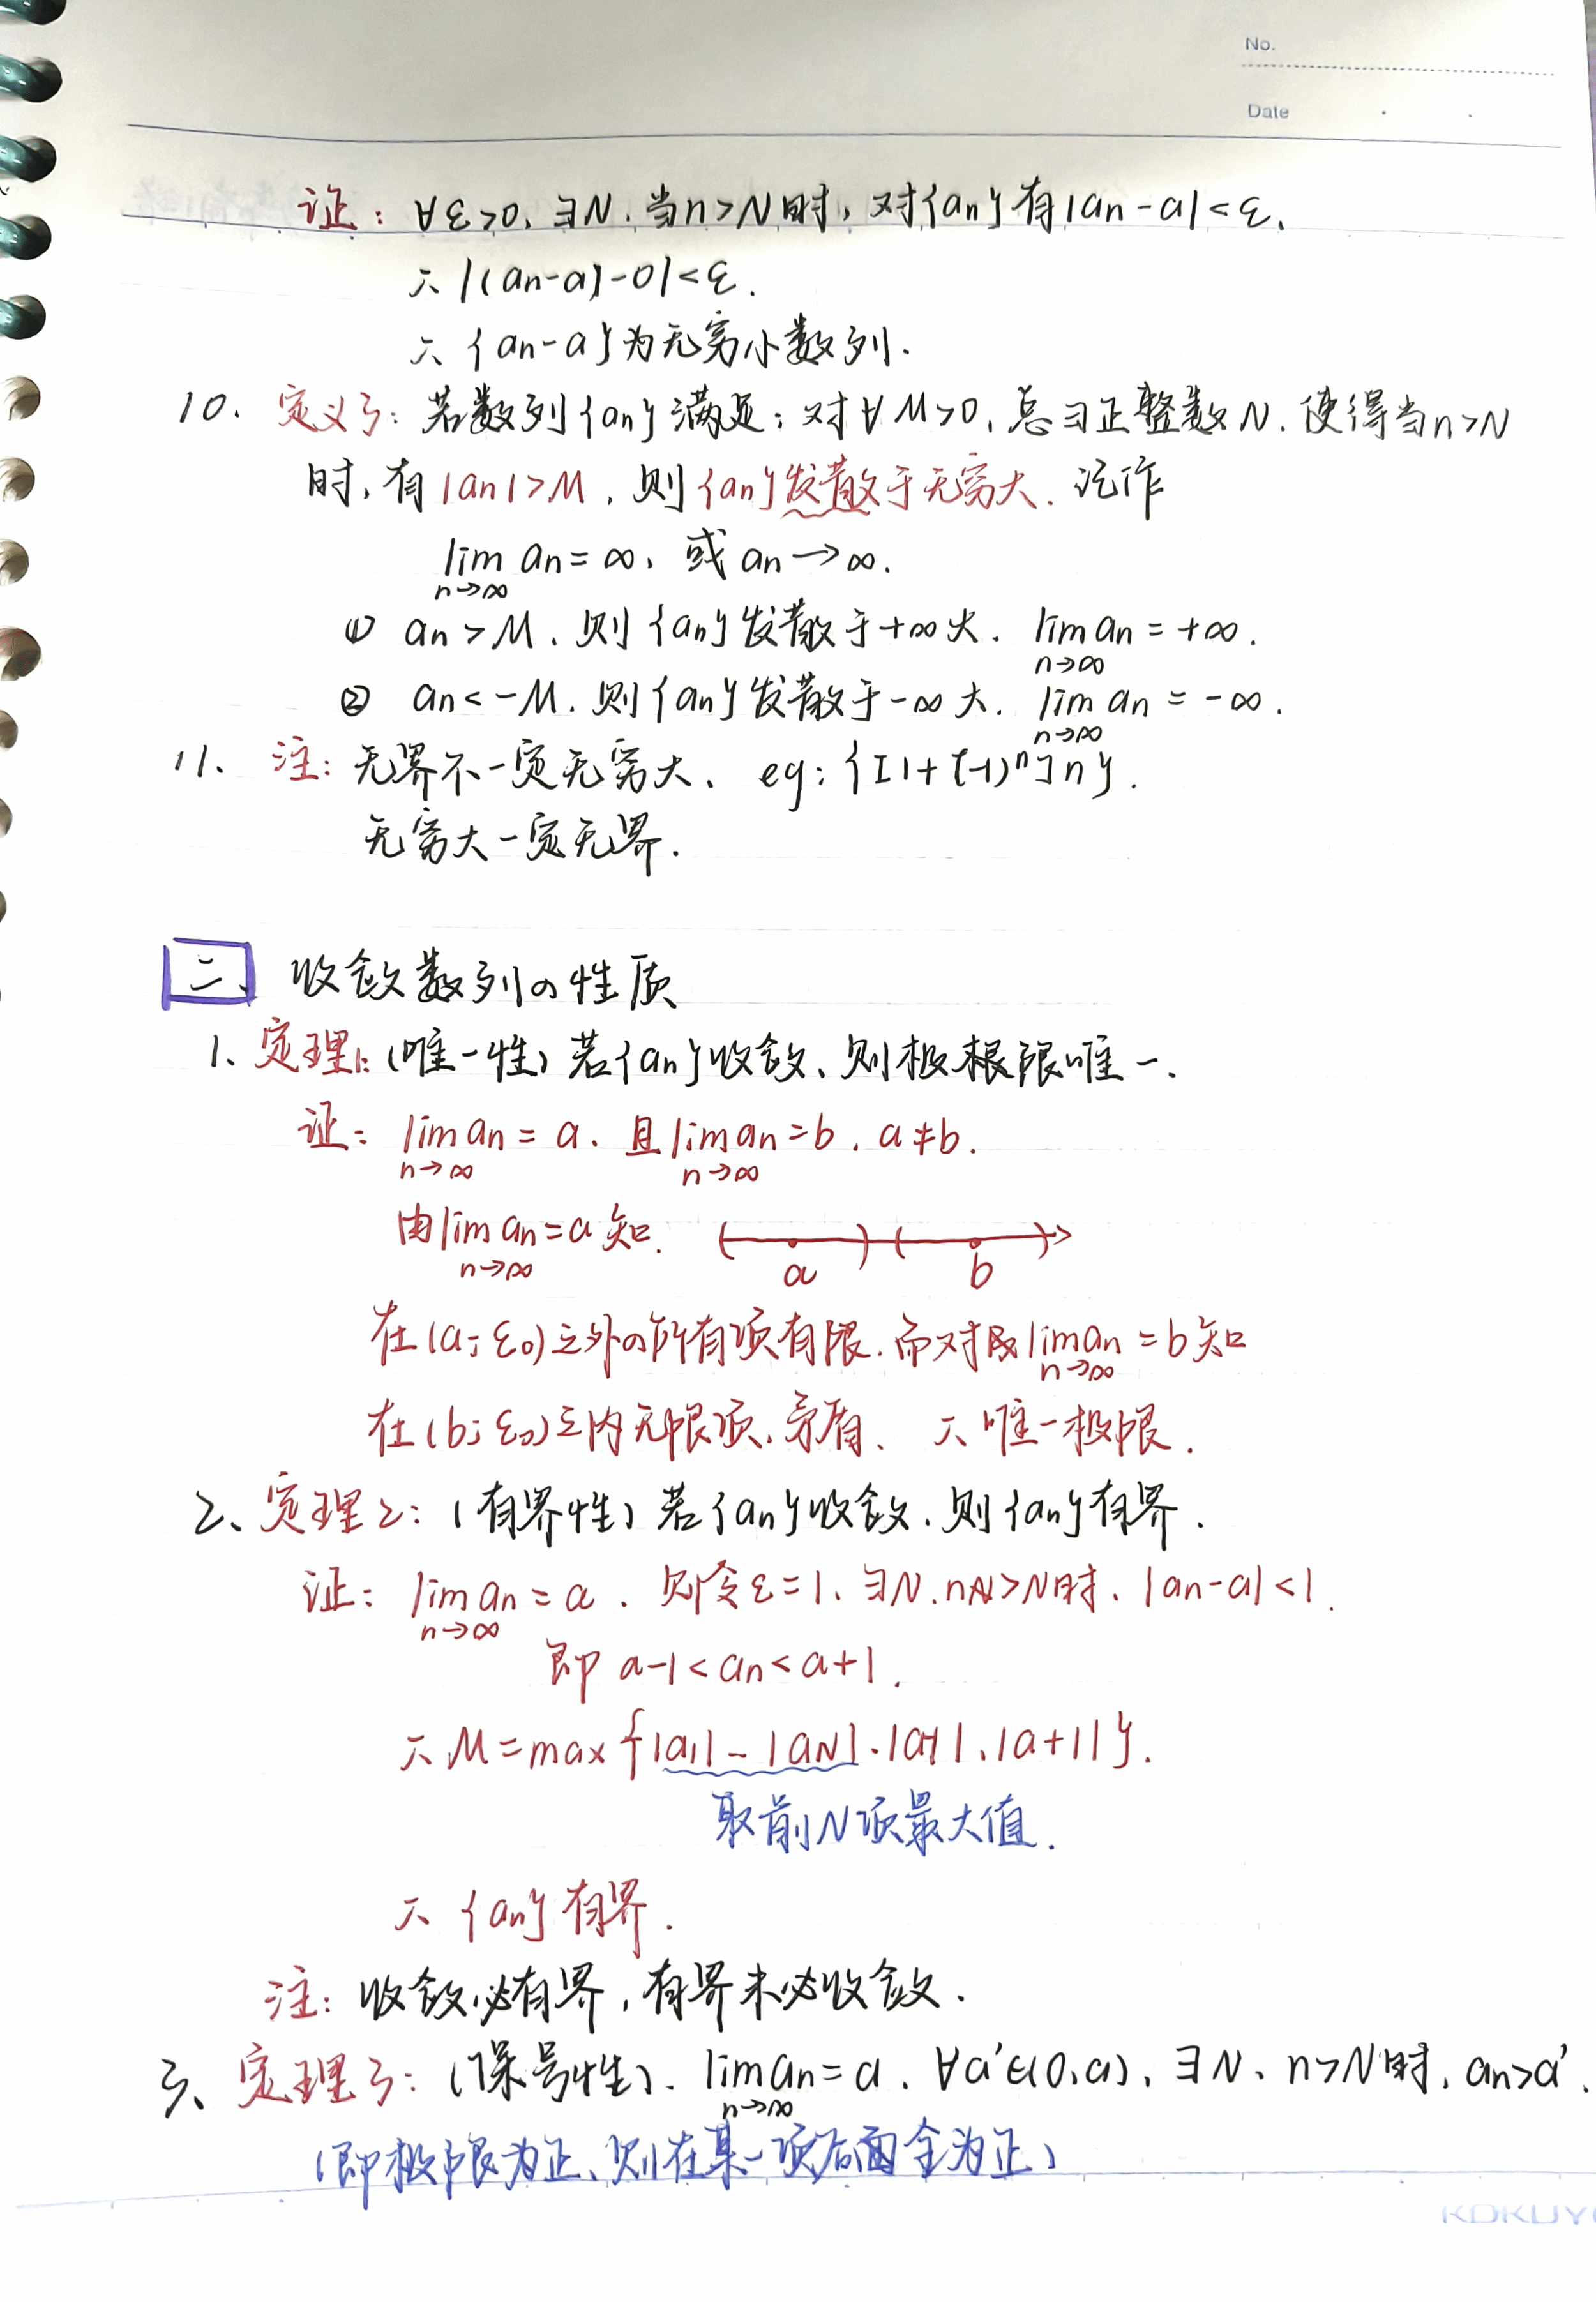 No.
Date
证: ∀ε>0, ∃N. 当n>N时, 对{an}有|an-a|<ε.
∴ |(an-a)-0|<ε.
∴ {an-a}为无穷小数列.
10. 定义3: 若数列{an}满足: 对∀M>0, 总∃正整数N. 使得当n>N
时, 有|an|>M, 则{an}发散于无穷大. 记作
lim an=∞, 或an→∞.
n→∞
① an>M, 则{an}发散于+∞大. lim an=+∞.
n→∞
② an<-M. 则{an}发散于-∞大. lim an=-∞.
n→∞
11. 注: 无界不一定无穷大. eg: {[1+(-1)^n]n}.
无穷大一定无界.
二、 收敛数列の性质
1、定理1: (唯一性) 若{an}收敛、则极限唯一.
证: lim an=a. 且lim an=b. a≠b.
n→∞ n→∞
由lim an=a知.
n→∞
a b
在(a; ε0)之外の所有项有限. 而对lim an=b知
n→∞
在(b; ε0)之内无限项, 矛盾、 ∴ 唯一极限.
2、定理2: (有界性) 若{an}收敛. 则{an}有界.
证: lim an=a. 则令ε=1、∃N. n>N时. |an-a|<1.
n→∞
即 a-1<an<a+1.
∴ M=max{|a1|-|aN|.|a-1|.|a+1|}.
取前N项最大值.
∴ {an}有界.
注: 收敛必有界, 有界未必收敛.
3、定理3: (保号性). lim an=a. ∀a'∈(0,a), ∃N、n>N时, an>a'.
n→∞
(即极限为正、则在某一项后面全为正)
KOKUYO